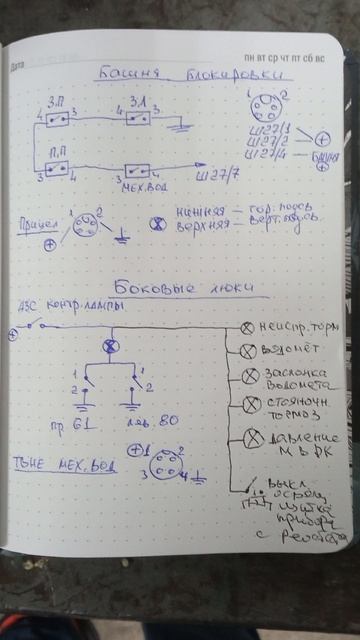 Дата
пн вт ср чт пт сб вс
Башня Блокировки
З.П З.Л
4 3 4 3
1 2
Ш27/1
Ш27/2 +
Ш27/4 - Башня
+
П.П
3 4 3 4
МЕХ.ВОД
Ш27/7
Прицел 1 2
+
нижняя - гор.
верхняя - верт.
Боковые люки
АЗС контр. лампы
+
неиспр. торм
водомёт
заслонка
водомета
стояночн
тормоз
давление
М в РК
1 1
2 2
пр 61 лев. 80
ТВНЕ МЕХ.ВОД + 1 2
3 4
выкл
освещ
щитка
прибор
с реостата